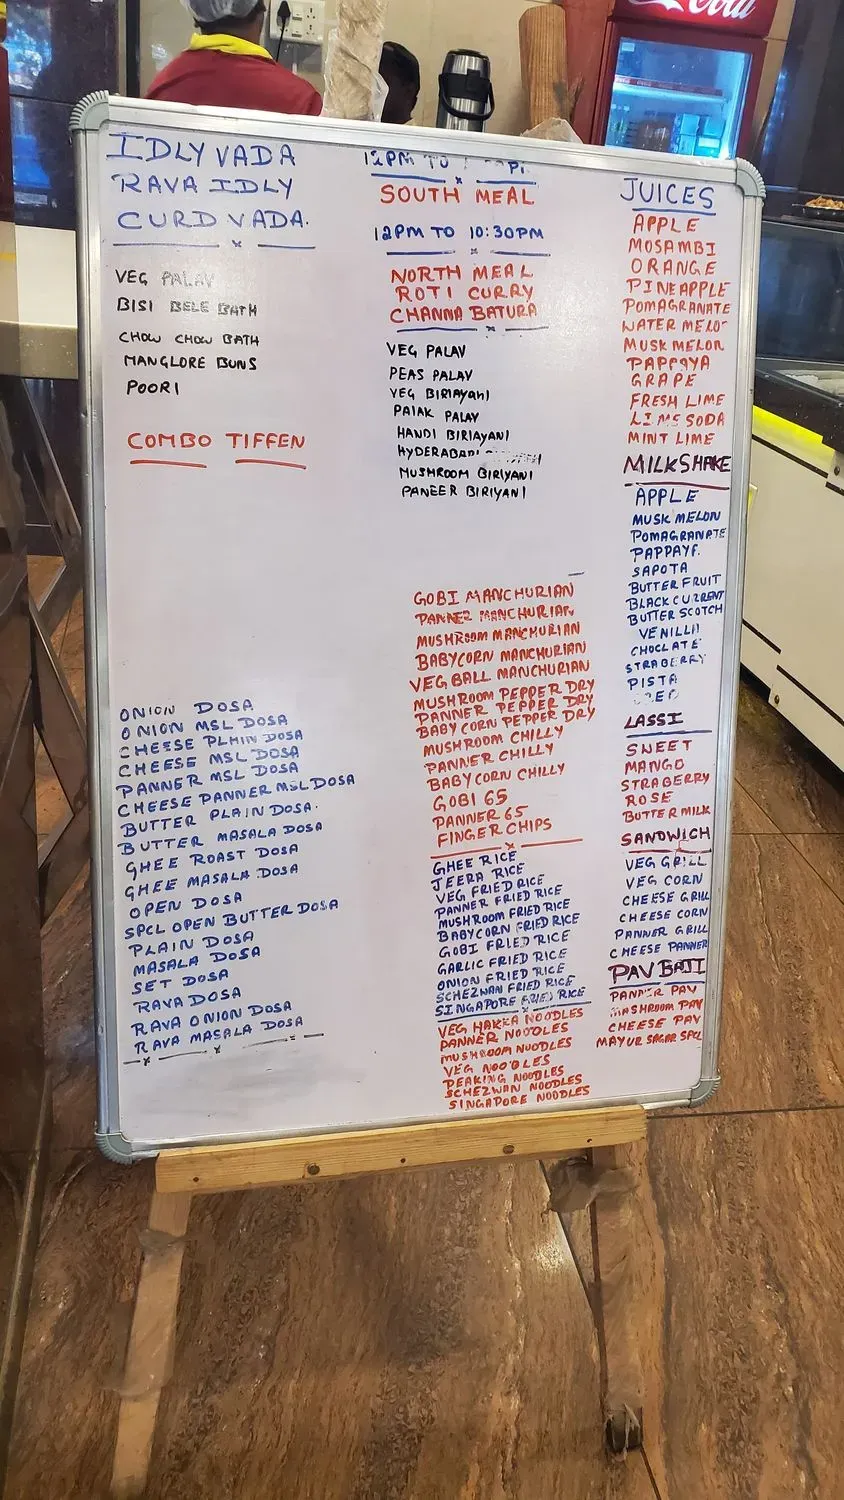 Cola
IDLY VADA
RAVA IDLY
CURD VADA.
VEG PALAV
BISI BELE BATH
CHOW CHOW BATH
MANGLORE BUNS
POORI
COMBO TIFFEN
ONION DOSA
ONION MSL DOSA
CHEESE PLAIN DOSA
CHEESE MSL DOSA
PANNER MSL DOSA
CHEESE PANNER MSL DOSA
BUTTER PLAIN DOSA.
BUTTER MASALA DOSA
GHEE ROAST DOSA
GHEE MASALA DOSA
OPEN DOSA
SPCL OPEN BUTTER DOSA
PLAIN DOSA
MASALA DOSA
SET DOSA
RAVA DOSA
RAVA ONION DOSA
RAVA MASALA DOSA
12PM TO
SOUTH MEAL
12PM TO 10:30PM
NORTH MEAL
ROTI CURRY
CHANNA BATURA
VEG PALAV
PEAS PALAV
VEG BIRIAYANI
PALAK PALAV
HANDI BIRIAYANI
MUSHROOM BIRIYANI
PANEER BIRIYANI
GOBI MANCHURIAN
PANNER MANCHURIAN
MUSHROOM MANCHURIAN
BABYCORN MANCHURIAN
VEG BALL MANCHURIAN
MUSHROOM PEPPER DRY
PANNER PEPPER DRY
BABY CORN PEPPER DRY
MUSHROOM CHILLY
PANNER CHILLY
BABY CORN CHILLY
GOBI 65
PANNER 65
FINGER CHIPS
GHEE RICE
JEERA RICE
VEG FRIED RICE
PANNER FRIED RICE
MUSHROOM FRIED RICE
BABYCORN FRIED RICE
GOBI FRIED RICE
GARLIC FRIED RICE
ONION FRIED RICE
SCHEZWAN FRIED RICE
SINGAPORE FRIED RICE
VEG HAKKA NOODLES
PANNER NOODLES
MUSHROOM NUODLES
VEG NOODLES
PEAKING NOODLES
SCHEZWAN NOODLES
SINGAPORE NOODLES
JUICES
APPLE
MOSAMBI
ORANGE
PINEAPPLE
POMAGRANATE
WATER MELO
MUSK MELON
PAPPAYA
GRAPE
FRESH LIME
LIME SODA
MINT LIME
MILKSHAKE
APPLE
MUSK MELON
POMAGRANATE
PAPPAY
SAPOTA
BUTTER FRUIT
BLACK CURRENT
BUTTER SCOTCH
VENILLI
CHOCLATE
STRABERRY
PISTA
LASSI
SWEET
MANGO
STRABERRY
ROSE
BUTTER MILK
SANDWICH
VEG GRILL
VEG CORN
CHEESE GRILL
CHEESE CORN
PANNER GRILL
CHEESE PANNER
PAV BAJI
PANNER PAV
MASHROOM PAV
CHEESE PAV
MAYUR SAGAR SPCL